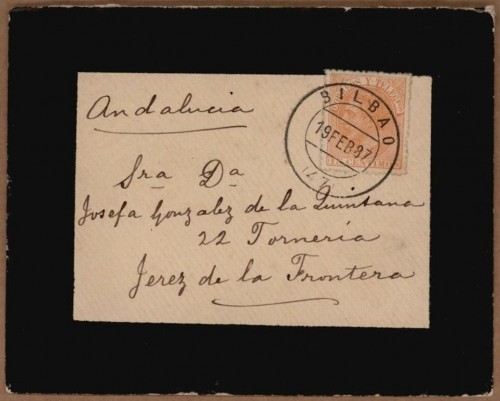 Andalucia
BILBAO
19 FEB 87
Sra Da
Josefa Gonzalez de la Quintana
22 Tornería
Jerez de la Frontera